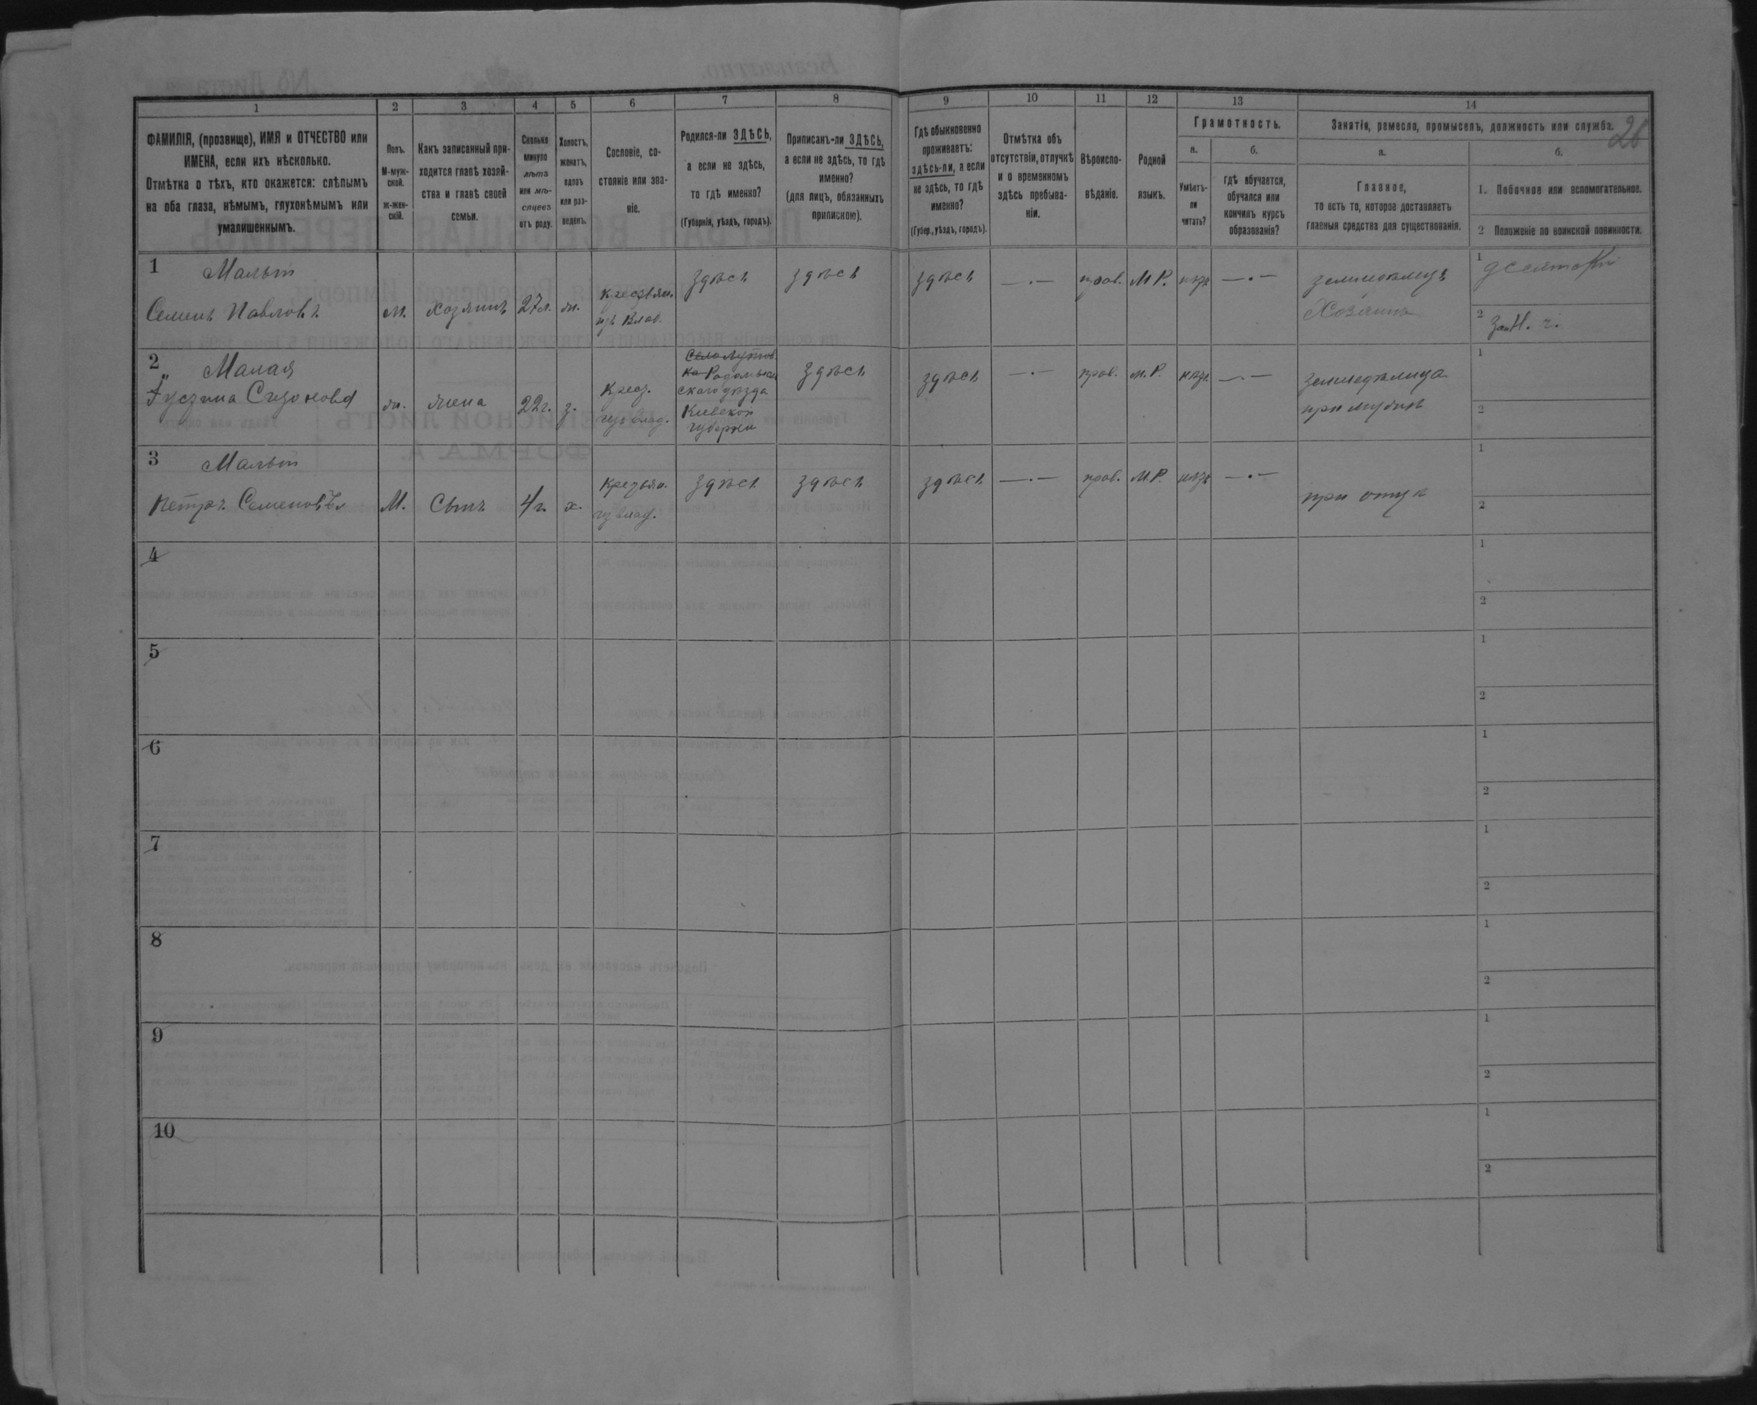 26
1 2 3 4 5 6 7 8 9 10 11 12 13 14
ФАМИЛІЯ, (прозвище), ИМЯ и ОТЧЕСТВО или
ИМЕНА, если ихъ нѣсколько.
Отмѣтка о тѣхъ, кто окажется: слѣпымъ
на оба глаза, нѣмымъ, глухонѣмымъ или
умалишеннымъ.
Полъ.
М-муж-
ской.
Ж-жен-
скій.
Какъ записанный при-
ходится главѣ хозяй-
ства и главѣ своей
семьи.
Сколько
минуло
лѣтъ
или мѣ-
сяцевъ
отъ роду.
Холостъ,
женатъ,
вдовъ
или раз-
веденъ.
Сословіе, со-
стояніе или зва-
ніе.
Родился-ли ЗДѢСЬ,
а если не здѣсь,
то гдѣ именно?
(Губернія, уѣздъ, городъ).
Приписанъ-ли ЗДѢСЬ,
а если не здѣсь, то гдѣ
именно?
(для лицъ, обязанныхъ
припискою).
Гдѣ обыкновенно
проживаетъ:
здѣсь-ли, а если
не здѣсь, то гдѣ
именно?
(Губер., уѣздъ, городъ).
Отмѣтка объ
отсутствіи, отлучкѣ
и о временномъ
здѣсь пребыва-
ніи.
Вѣроиспо-
вѣданіе.
Родной
языкъ.
Грамотность.
а.
Умѣетъ-
ли
читать?
б.
гдѣ обучается,
обучался или
кончилъ курсъ
образованія?
Занятія, ремесло, промыселъ, должность или служба.
а.
Главное,
то есть то, которое доставляетъ
главныя средства для существованія.
б.
1. Побочное или вспомогательное.
2 Положеніе по воинской повинности.
1 Малый
Семенъ Павловъ
м.
хозяинъ
27л.
ж.
Крестьян.
изъ Влад.
здѣсь
здѣсь
здѣсь
—·—
прав.
М.Р.
—·—
земледѣлецъ
Хозяинъ
1
2
2 Малая
ж.
жена
22г.
з.
Крест.
изъ влад.
Радомысль
скаго уѣзда
Кіевской
губерніи
здѣсь
здѣсь
—·—
прав.
М.Р.
—·—
при мужѣ
1
2
3 Малый
Петръ Семеновъ
М.
Сынъ
4г.
х.
Крестьян.
изъ влад.
здѣсь
здѣсь
здѣсь
—·—
прав.
М.Р.
—·—
при отцѣ
1
2
4
1
2
5
1
2
6
1
2
7
1
2
8
1
2
9
1
2
10
1
2